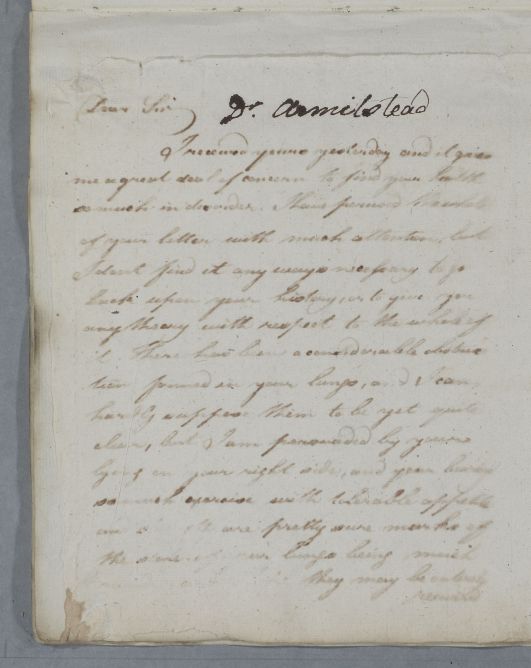 Dear Sir
Dr. Armilstead
I received yours yesterday and it gives
me a great deal of concern to find your health
so much in disorder. I have perused the whole
of your letter with much attention, but
I dont find it any ways necessary to go
back upon your history, or to give you
any theory with respect to the whole of
it. There has been a considerable obstruc
tion formed in your lungs, and I can
hardly suppose them to be yet quite
clear, but I am persuaded by your
lying on your right side, and your being
so much exercise with tolerable appetite
are pretty sure marks of
the lungs being much
they may be entirely